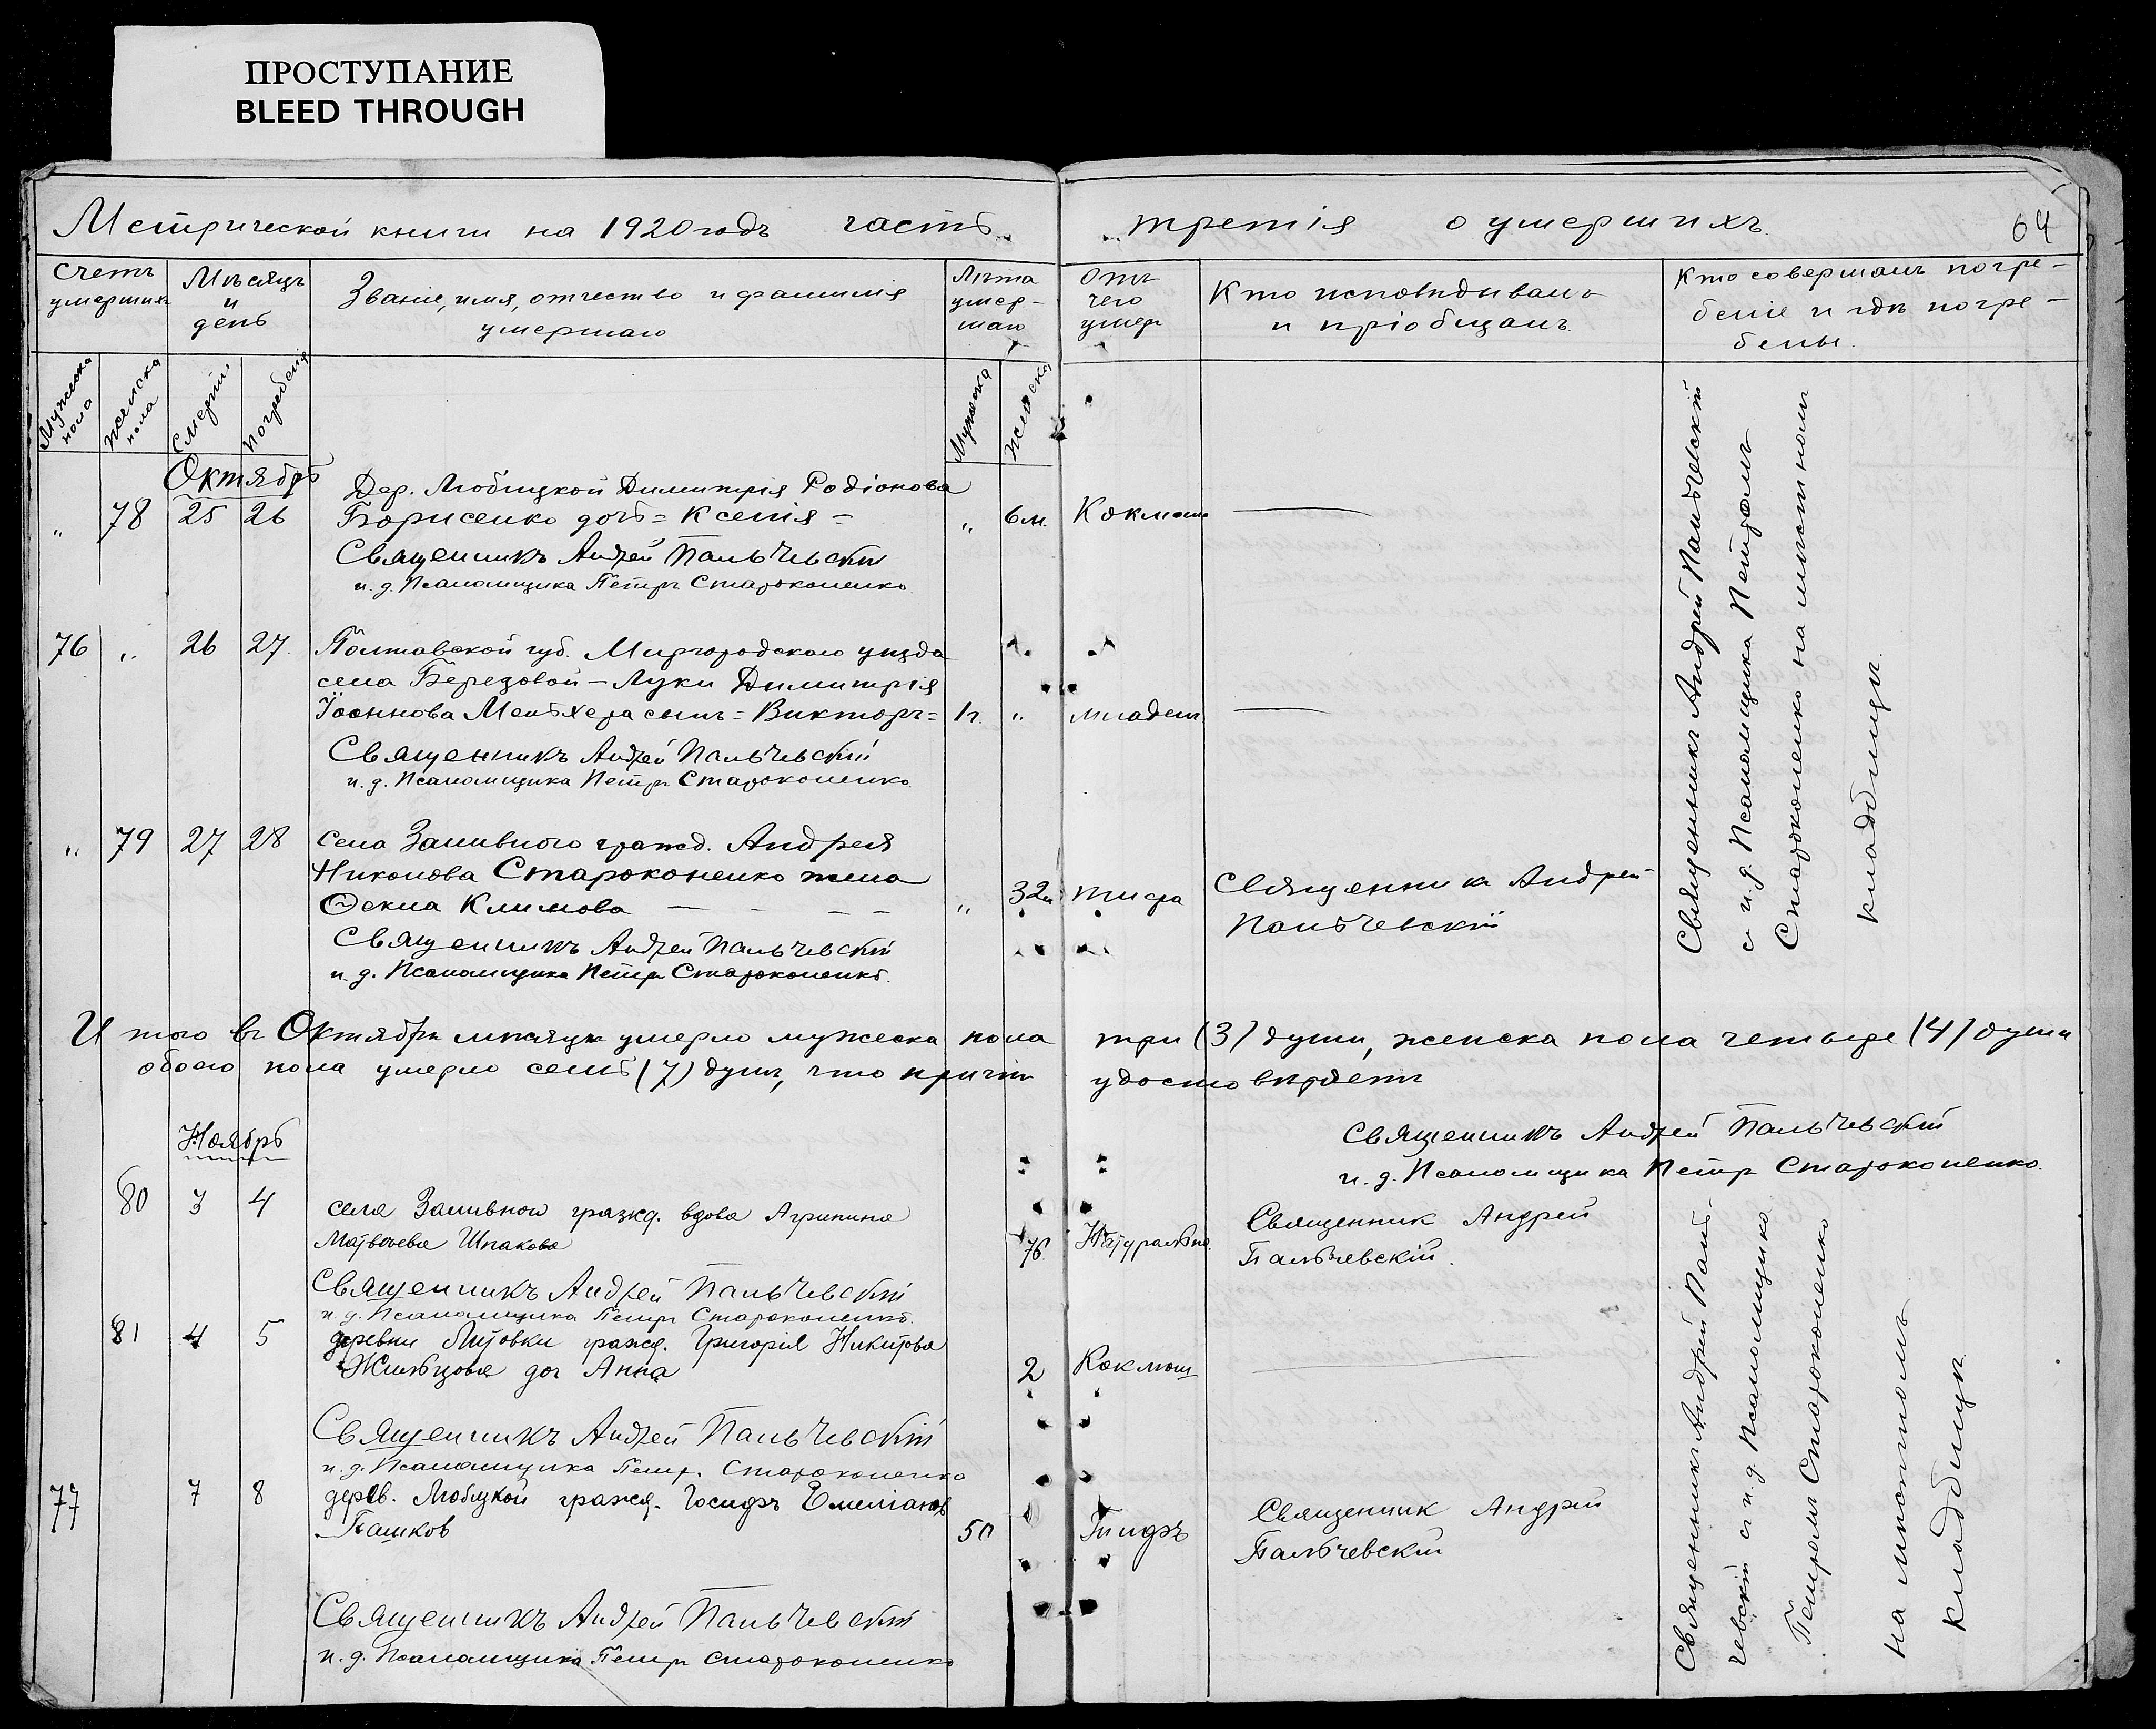 ПРОСТУПАНИЕ
BLEED THROUGH
Метрической книги на 1920 годъ часть третія о умершихъ.
64
Счетъ умершихъ
Мѣсяцъ и день
Званіе, имя, отчество и фамилія умершаго
Лѣта умер-шаго
Отъ чего умеръ
Кто исповѣдывалъ и пріобщалъ.
Кто совершалъ погре-беніе и гдѣ погре-бены.
Мужеска пола
Женска пола
Смерти
Погребенія
Мужеска
Женска
Октябрь
Дер. Любицкой Димитрія Родіонова
„ 78 25 26 Борисенко дочь = Ксенія = „ 6 м. Коклюш
Священникъ Андрей Пальчевскій
и. д. Псаломщика Петръ Староконенко.
76 „ 26 27. Полтавской губ. Миргородскаго уѣзда
села Березовой - Луки Димитрія
Іоаннова сынъ = Викторъ = 1 г. „ младен
Священникъ Андрей Пальчевскій
и. д. Псаломщика Петръ Староконенко.
„ 79 27 28 села Заливного гражд. Андрея
Никонова Староконенко жена
Ѳекла Климова „ 32 тифа Священникъ Андрей
Пальчевскій
Священникъ Андрей Пальчевскій
и. д. Псаломщика Петръ Староконенко.
Священникъ Андрей Пальчевскій
с и. д. Псаломщика Петромъ
Староконенко на мѣстномъ
кладбищѣ.
Итого въ Октябрѣ мѣсяцѣ умерло мужеска пола три (3) души, женска пола четыре (4) души
обоего пола умерло семь (7) душъ, что причтъ удостовѣряетъ
Священникъ Андрей Пальчевскій
и. д. Псаломщика Петръ Староконенко.
Ноябрь
80 3 4 села Заливного гражд. вдова Агрипина
Матвѣева Шпакова 76. Натуральне. Священник Андрей
Пальчевскій.
Священникъ Андрей Пальчевскій
и. д. Псаломщика Петръ Староконенко.
81 4 5 деревни Литовки гражд. Григорія Никитова
Жильцова доч Анна 2 Коклюш
Священникъ Андрей Пальчевскій
и. д. Псаломщика Петръ. Староконенко
77 7 8 дерев. Любицкой гражд. Іосифъ Емеліанов
Пашков 50 Тифъ Священник Андрей
Пальчевскій
Священникъ Андрей Пальчевскій
и. д. Псаломщика Петръ Староконенко
Священникъ Андрей Паль-
чевскій с и. д. Псаломщико
Петромъ Староконенко
на мѣстномъ
кладбищѣ.